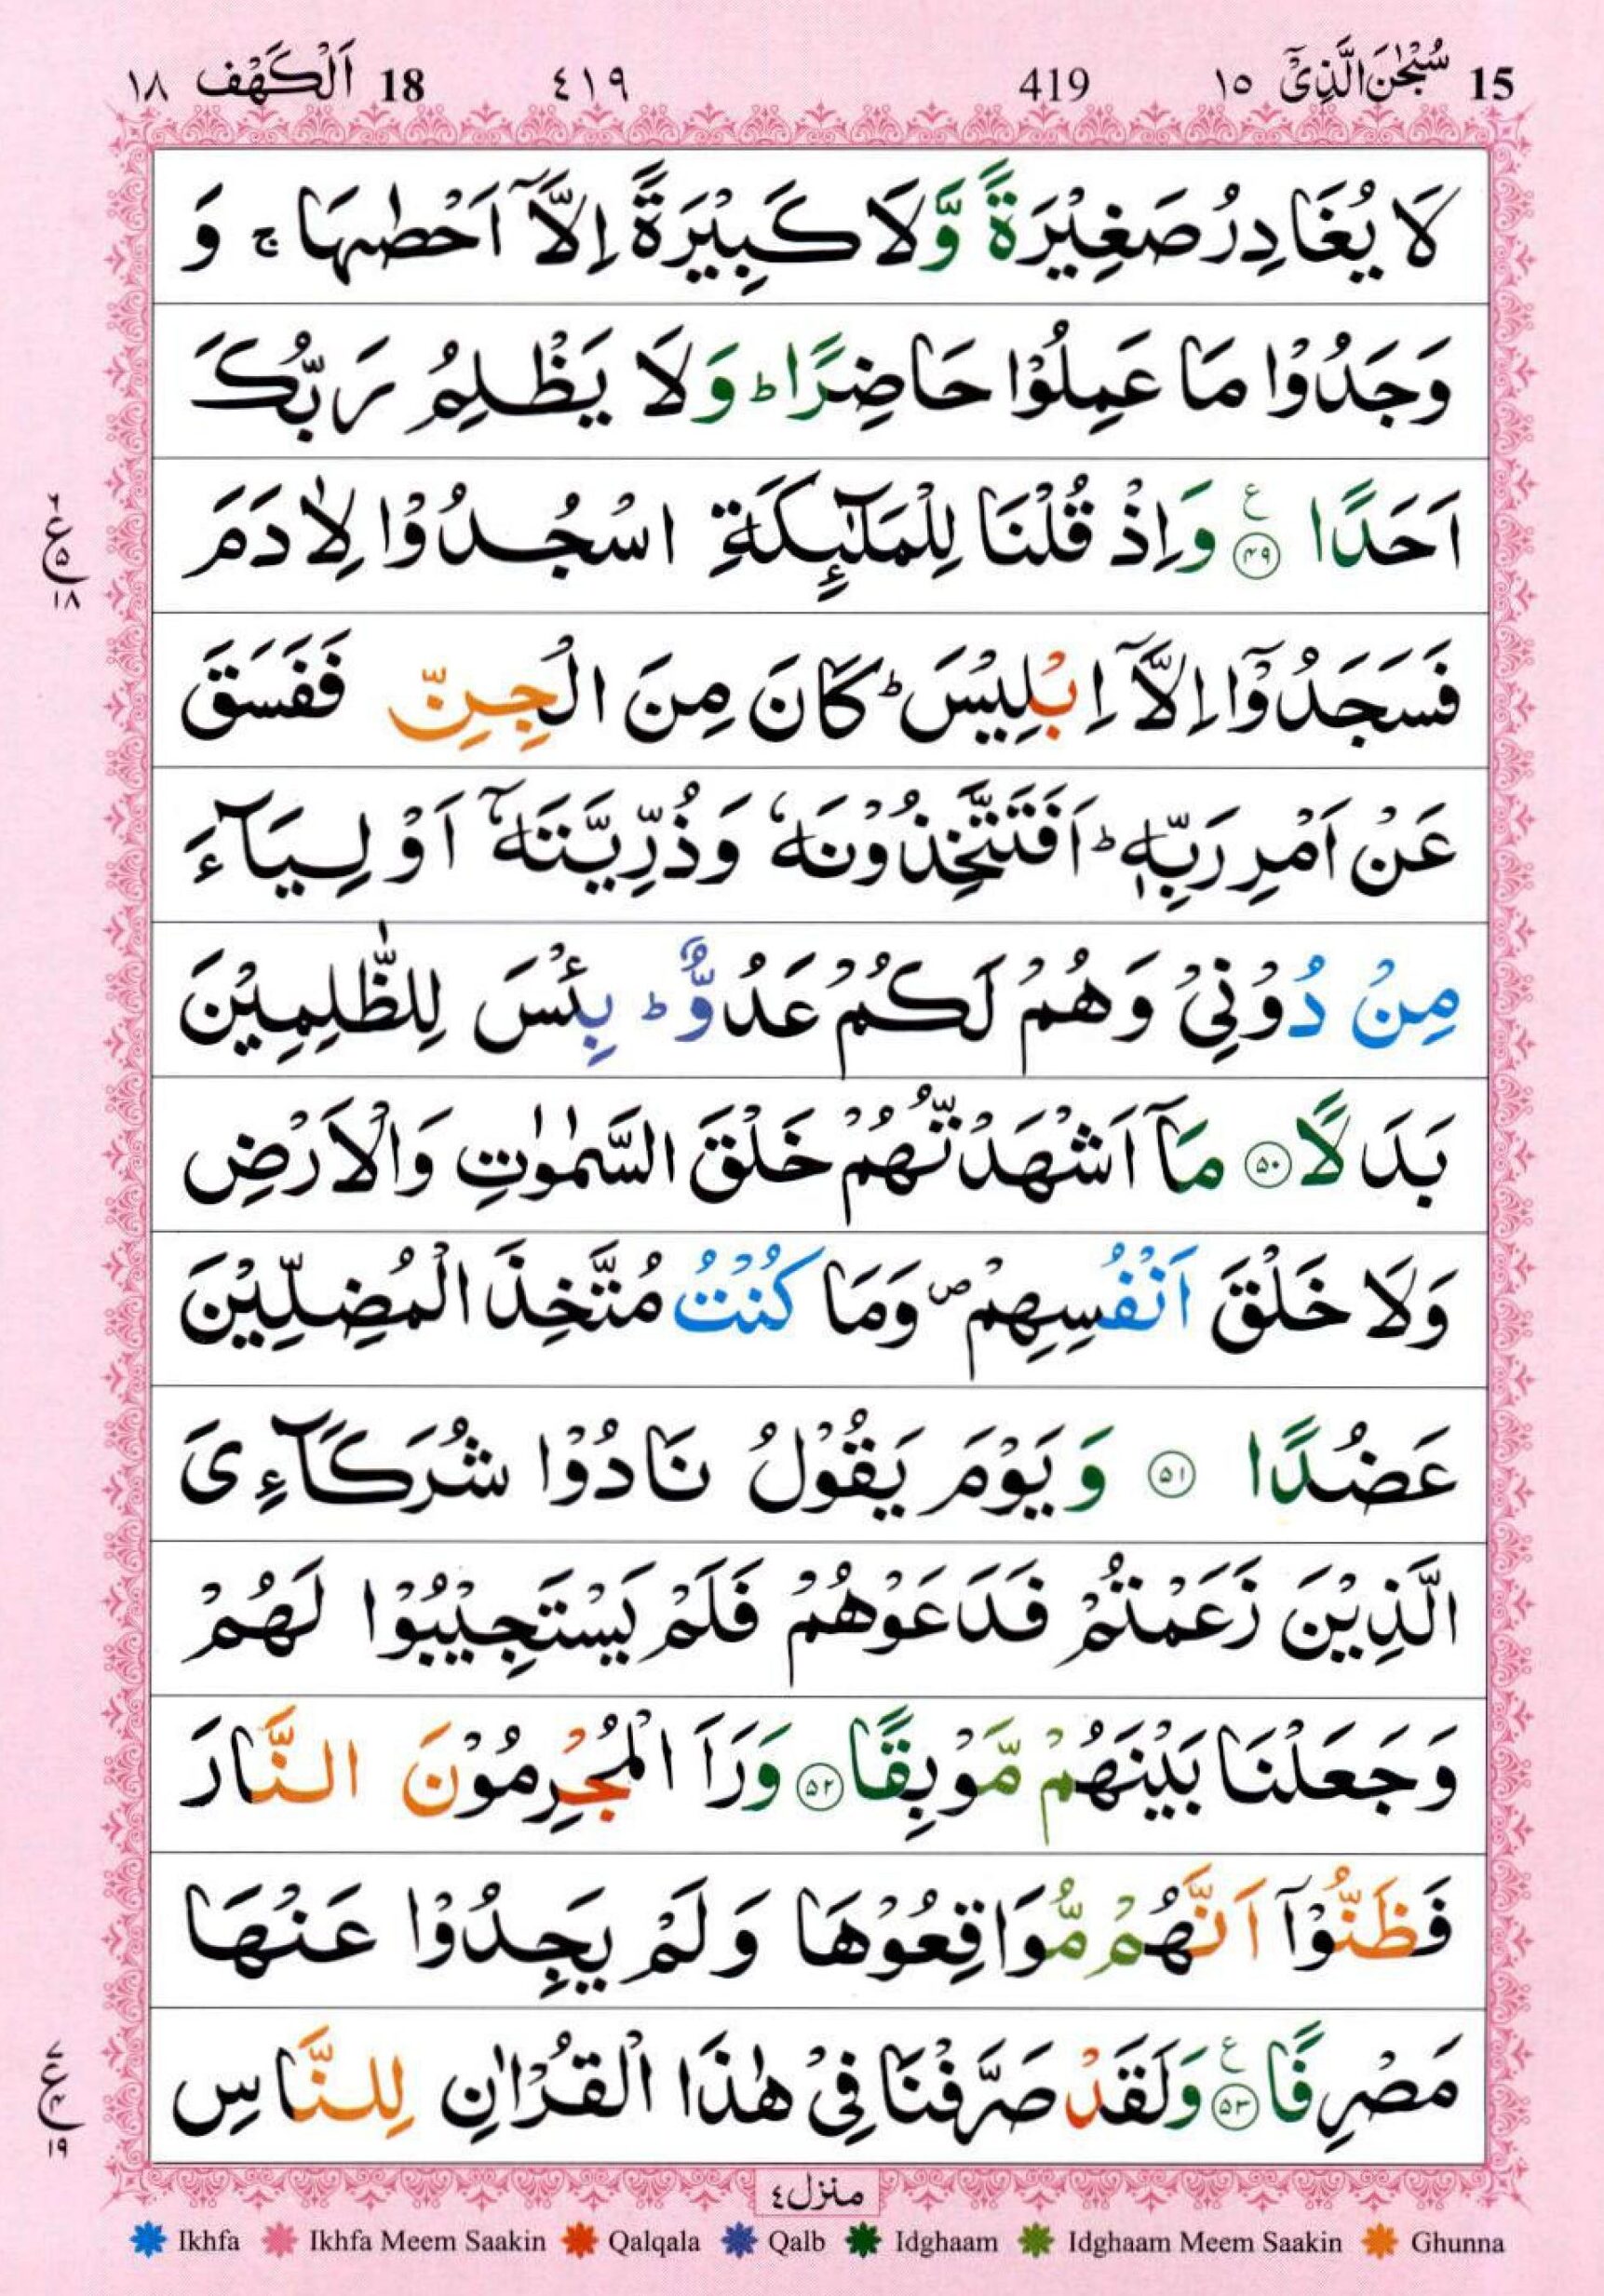 15 سُبْحٰنَ الَّذِیْۤ ١٥ 419 ٤١٩ 18 اَلْكَهْف ١٨
لَا یُغَادِرُ صَغِیْرَةً وَّلَا كَبِیْرَةً اِلَّاۤ اَحْصٰىهَا ۚ وَ
وَجَدُوْا مَا عَمِلُوْا حَاضِرًا ؕ وَلَا یَظْلِمُ رَبُّكَ
اَحَدًا ۧ ﴿۴۹﴾ وَاِذْ قُلْنَا لِلْمَلٰٓىِٕكَةِ اسْجُدُوْا لِاٰدَمَ
فَسَجَدُوْۤا اِلَّاۤ اِبْلِیْسَ ؕ كَانَ مِنَ الْجِنِّ فَفَسَقَ
عَنْ اَمْرِ رَبِّهٖ ؕ اَفَتَتَّخِذُوْنَهٗ وَذُرِّیَّتَهٗۤ اَوْلِیَآءَ
مِنْ دُوْنِیْ وَهُمْ لَكُمْ عَدُوٌّ ؕ بِئْسَ لِلظّٰلِمِیْنَ
بَدَلًا ﴿۵۰﴾ مَاۤ اَشْهَدْتُّهُمْ خَلْقَ السَّمٰوٰتِ وَالْاَرْضِ
وَلَا خَلْقَ اَنْفُسِهِمْ ۪ وَمَا كُنْتُ مُتَّخِذَ الْمُضِلِّیْنَ
عَضُدًا ﴿۵۱﴾ وَیَوْمَ یَقُوْلُ نَادُوْا شُرَكَآءِیَ
الَّذِیْنَ زَعَمْتُمْ فَدَعَوْهُمْ فَلَمْ یَسْتَجِیْبُوْا لَهُمْ
وَجَعَلْنَا بَیْنَهُمْ مَّوْبِقًا ﴿۵۲﴾ وَرَاَ الْمُجْرِمُوْنَ النَّارَ
فَظَنُّوْۤا اَنَّهُمْ مُّوَاقِعُوْهَا وَلَمْ یَجِدُوْا عَنْهَا
مَصْرِفًا ۧ ﴿۵۳﴾ وَلَقَدْ صَرَّفْنَا فِیْ هٰذَا الْقُرْاٰنِ لِلنَّاسِ
منزل ٤
Ikhfa Ikhfa Meem Saakin Qalqala Qalb Idghaam Idghaam Meem Saakin Ghunna